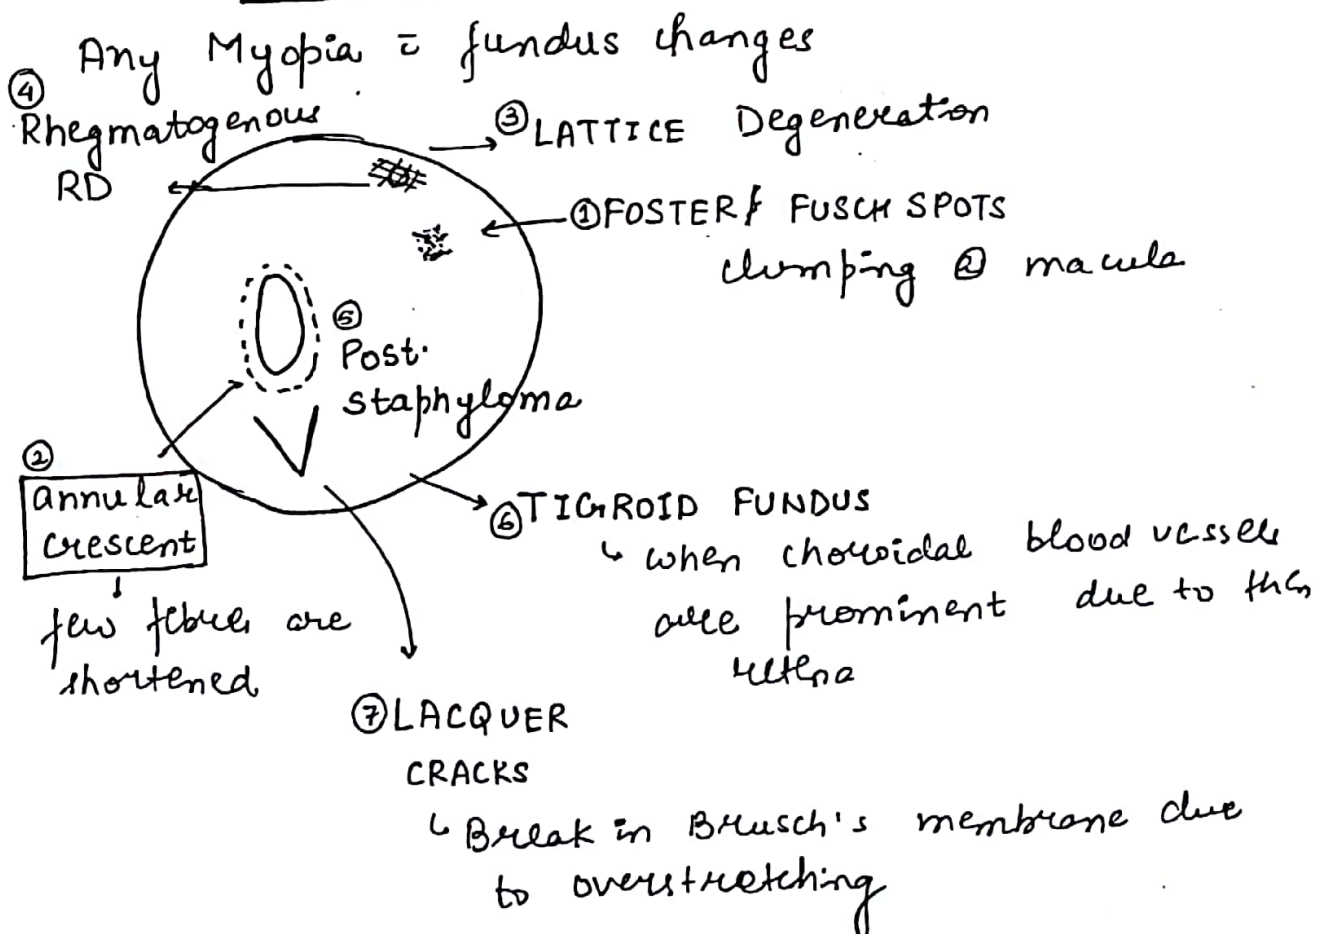 Any Myopia c̄ fundus changes
④
Rhegmatogenous
RD
③ LATTICE Degeneration
① FOSTER FUSCH SPOTS
clumping @ macula
⑤
Post.
staphyloma
②
annular
crescent
few fibres are
shortened
⑥ TIGROID FUNDUS
↳ when choroidal blood vessels
are prominent due to thin
retina
⑦ LACQUER
CRACKS
↳ Break in Brusch's membrane due
to overstretching